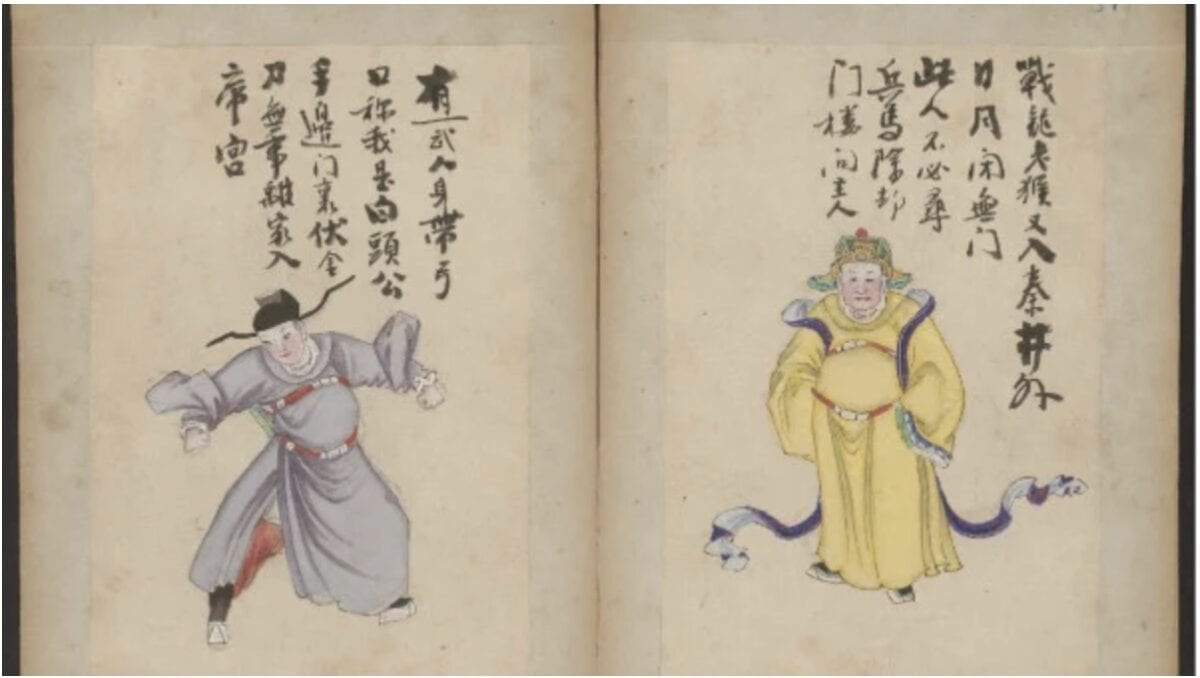 戰龍老猴又入秦井外
日月闭無门
此人不必尋
兵馬除却
门樓向主人
有一武人身帶弓
口称我是白頭公
手邊门裏伏金
刀無事離家入
帝宮